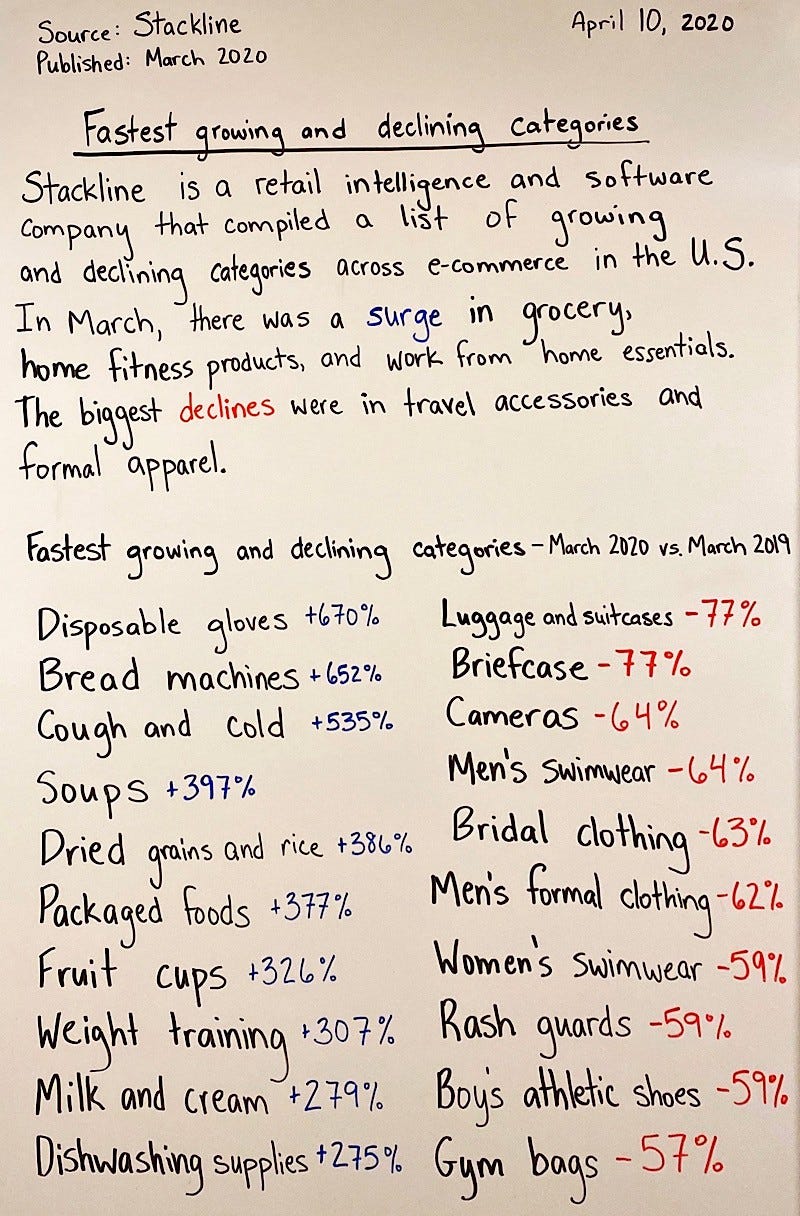 Source: Stackline
April 10, 2020
Published: March 2020
Fastest growing and declining categories
Stackline is a retail intelligence and software
company that compiled a list of growing
and declining categories across e-commerce in the U.S.
In March, there was a surge in grocery,
home fitness products, and work from home essentials.
The biggest declines were in travel accessories and
formal apparel.
Fastest growing and declining categories - March 2020 vs. March 2019
Disposable gloves +670%
Bread machines +652%
Cough and cold +535%
Soups +397%
Dried grains and rice +386%
Packaged foods +377%
Fruit cups +326%
Weight training +307%
Milk and cream +279%
Dishwashing supplies +275%
Luggage and suitcases -77%
Briefcase -77%
Cameras -64%
Men's swimwear -64%
Bridal clothing -63%
Men's formal clothing -62%
Women's swimwear -59%
Rash guards -59%
Boy's athletic shoes -59%
Gym bags -57%